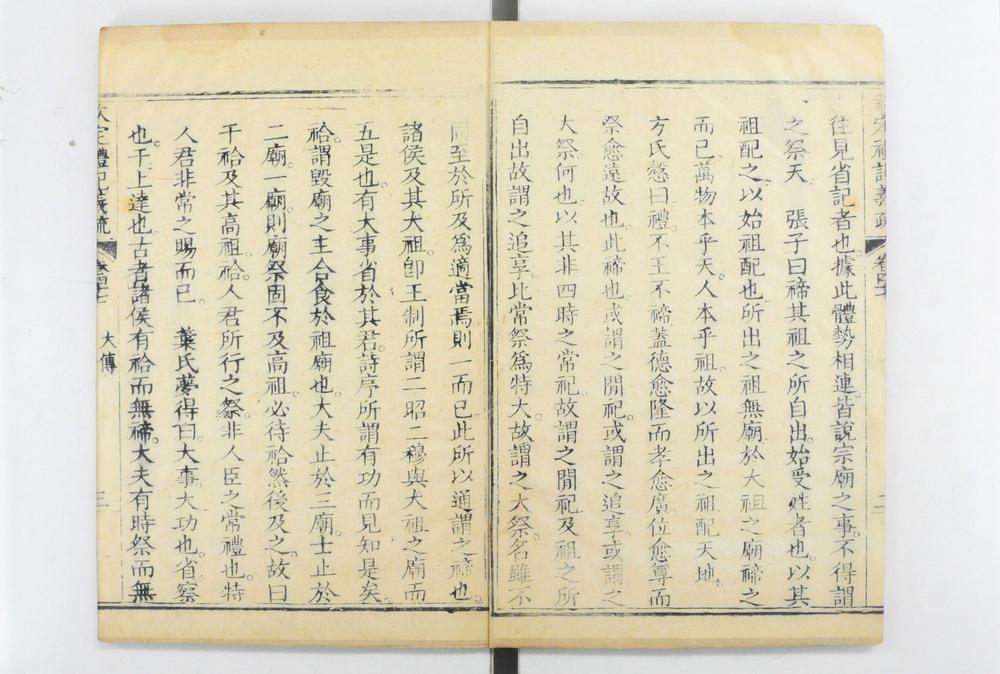 欽定禮記義疏 卷四十七 二
往見省記者也據此體勢相連皆說宗廟之事不得謂
之祭天 張子曰禘其祖之所自出始受姓者也以其
祖配之以始祖配也所出之祖無廟於大祖之廟禘之
而已萬物本乎天人本乎祖故以所出之祖配天地
方氏慤曰禮不王不禘蓋德愈隆而孝愈廣位愈尊而
祭愈遠故也此禘也或謂之閒祀或謂之追享或謂之
大祭何也以其非四時之常祀故謂之閒祀及祖之所
自出故謂之追享比常祭為特大故謂之大祭名雖不
同至於所及為適當焉則一而已此所以通謂之禘也
諸侯及其大祖卽王制所謂二昭二穆與大祖之廟而
五是也有大事省於其君詩序所謂有功而見知是矣
祫謂毀廟之主合食於祖廟也大夫止於三廟士止於
二廟一廟則廟祭固不及高祖必待祫然後及之故曰
干祫及其高祖祫人君所行之祭非人臣之常禮也特
人君非常之賜而已 葉氏夢得曰大事大功也省察
也干上達也古者諸侯有祫而無禘大夫有時祭而無
欽定禮記義疏 卷四十七 大傳 三